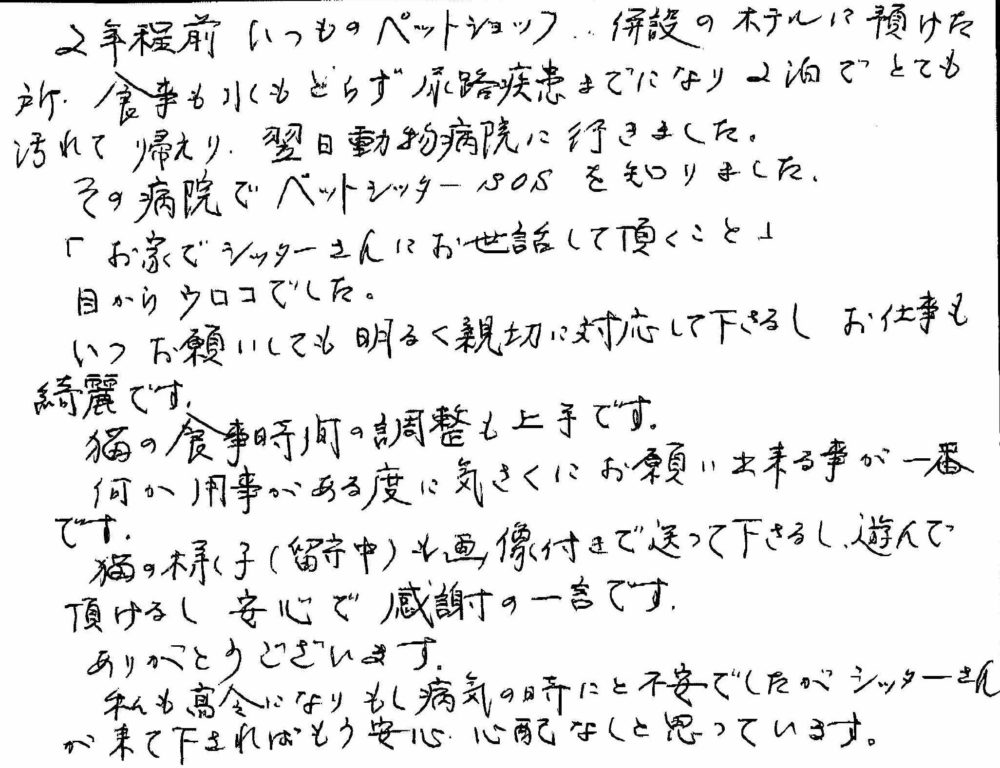 2年程前 いつものペットショップ..併設のホテルに預けた
所.食事も水くもとらず尿路疾患までになり 2泊でとても
汚れて帰えり.翌日動物病院に行きました。
その病院でペットシッターSOSを知りました.
「お家でシッターさんにお世話して頂くこと」
目からウロコでした。
いつお願いしても明るく親切に対応して下さるし お仕事も
綺麗です.
猫の食事時間の調整も上手です.
何か用事がある度に気さくにお願い出来る事が一番
です.
猫の様子(留守中)も画像付きで送って下さるし、遊んで
頂けるし 安心で感謝の一言です.
ありがとうございます.
私も高令になりもし病気の時にと不安でしたがシッターさん
が来て下さればもう安心.心配なしと思っています。